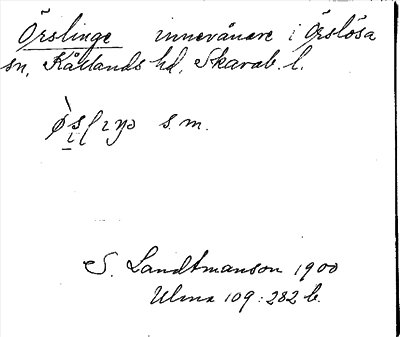 Örslinge innevånare i Örslösa
sn, Kållands hd, Skarab. l.
s. m.
S. Landtmanson 1900
Ulma 109:282 b.